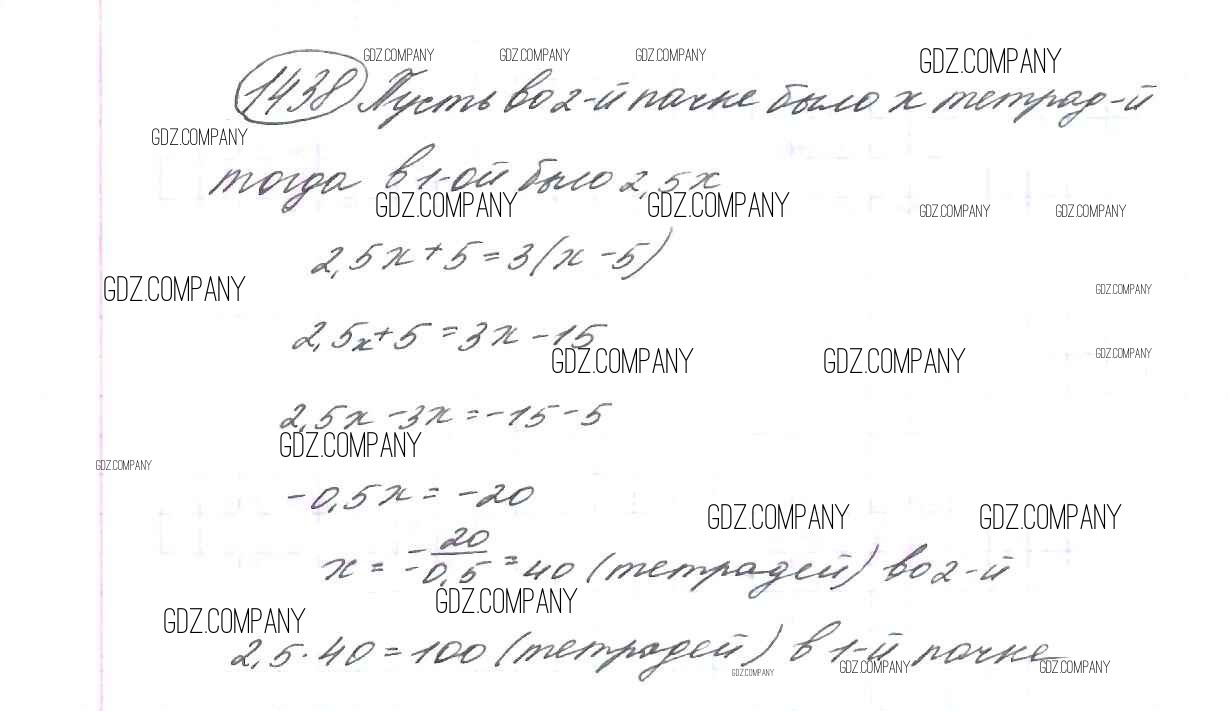 GDZ.COMPANY GDZ.COMPANY GDZ.COMPANY GDZ.COMPANY
1438 Пусть во 2-й пачке было х тетрад-й
GDZ.COMPANY
тогда в 1-ой было 2,5х
GDZ.COMPANY GDZ.COMPANY GDZ.COMPANY GDZ.COMPANY
2,5х + 5 = 3(х - 5)
GDZ.COMPANY GDZ.COMPANY
2,5х + 5 = 3х - 15
GDZ.COMPANY GDZ.COMPANY GDZ.COMPANY
2,5х - 3х = -15 - 5
GDZ.COMPANY
GDZ.COMPANY
-0,5х = -20
GDZ.COMPANY GDZ.COMPANY
х = -20/-0,5 = 40 (тетрадей) во 2-й
GDZ.COMPANY
GDZ.COMPANY
2,5 · 40 = 100 (тетрадей) в 1-й пачке
GDZ.COMPANY GDZ.COMPANY GDZ.COMPANY